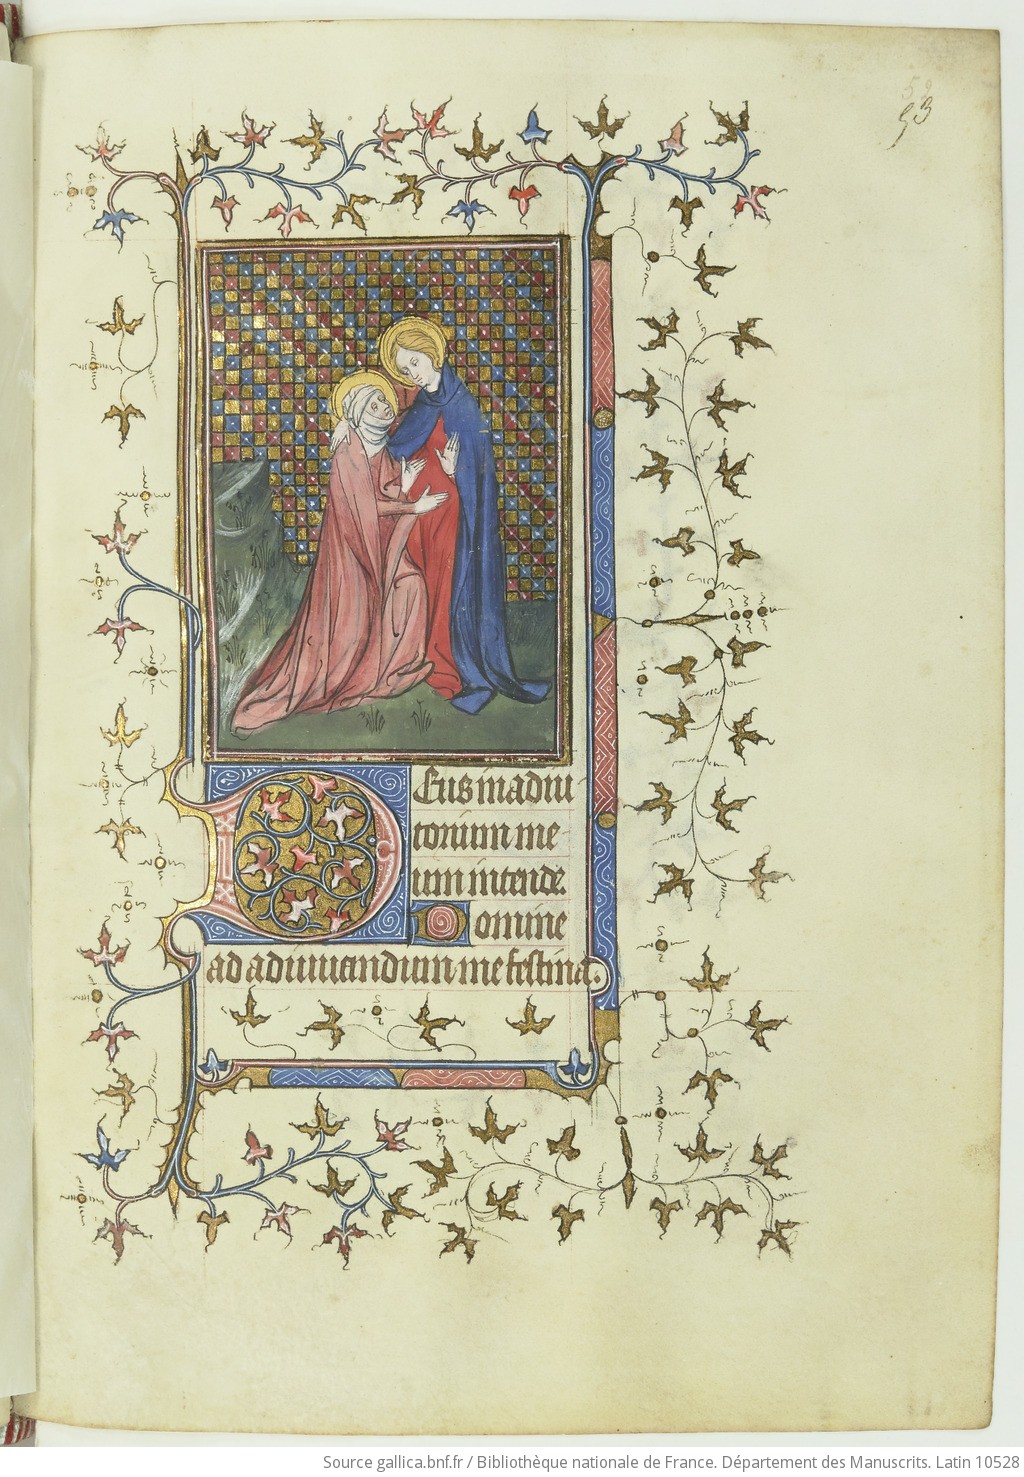 53
Deus in adiu
torium me-
um intende.
Domine
ad adiuuandum me festina.
Source gallica.bnf.fr / Bibliothèque nationale de France. Département des Manuscrits. Latin 10528